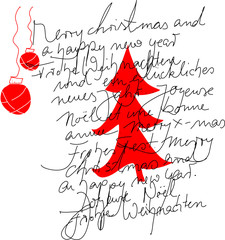 Merry christmas and
a happy new year
Frohe Weihnachten
und ein glückliches
neues Jahr Joyeuse
Noël et une bonne
année merry x-mas
Frohes Fest merry
christmas and
a happy new year.
Joyeuse Noël
Frohe Weihnachten